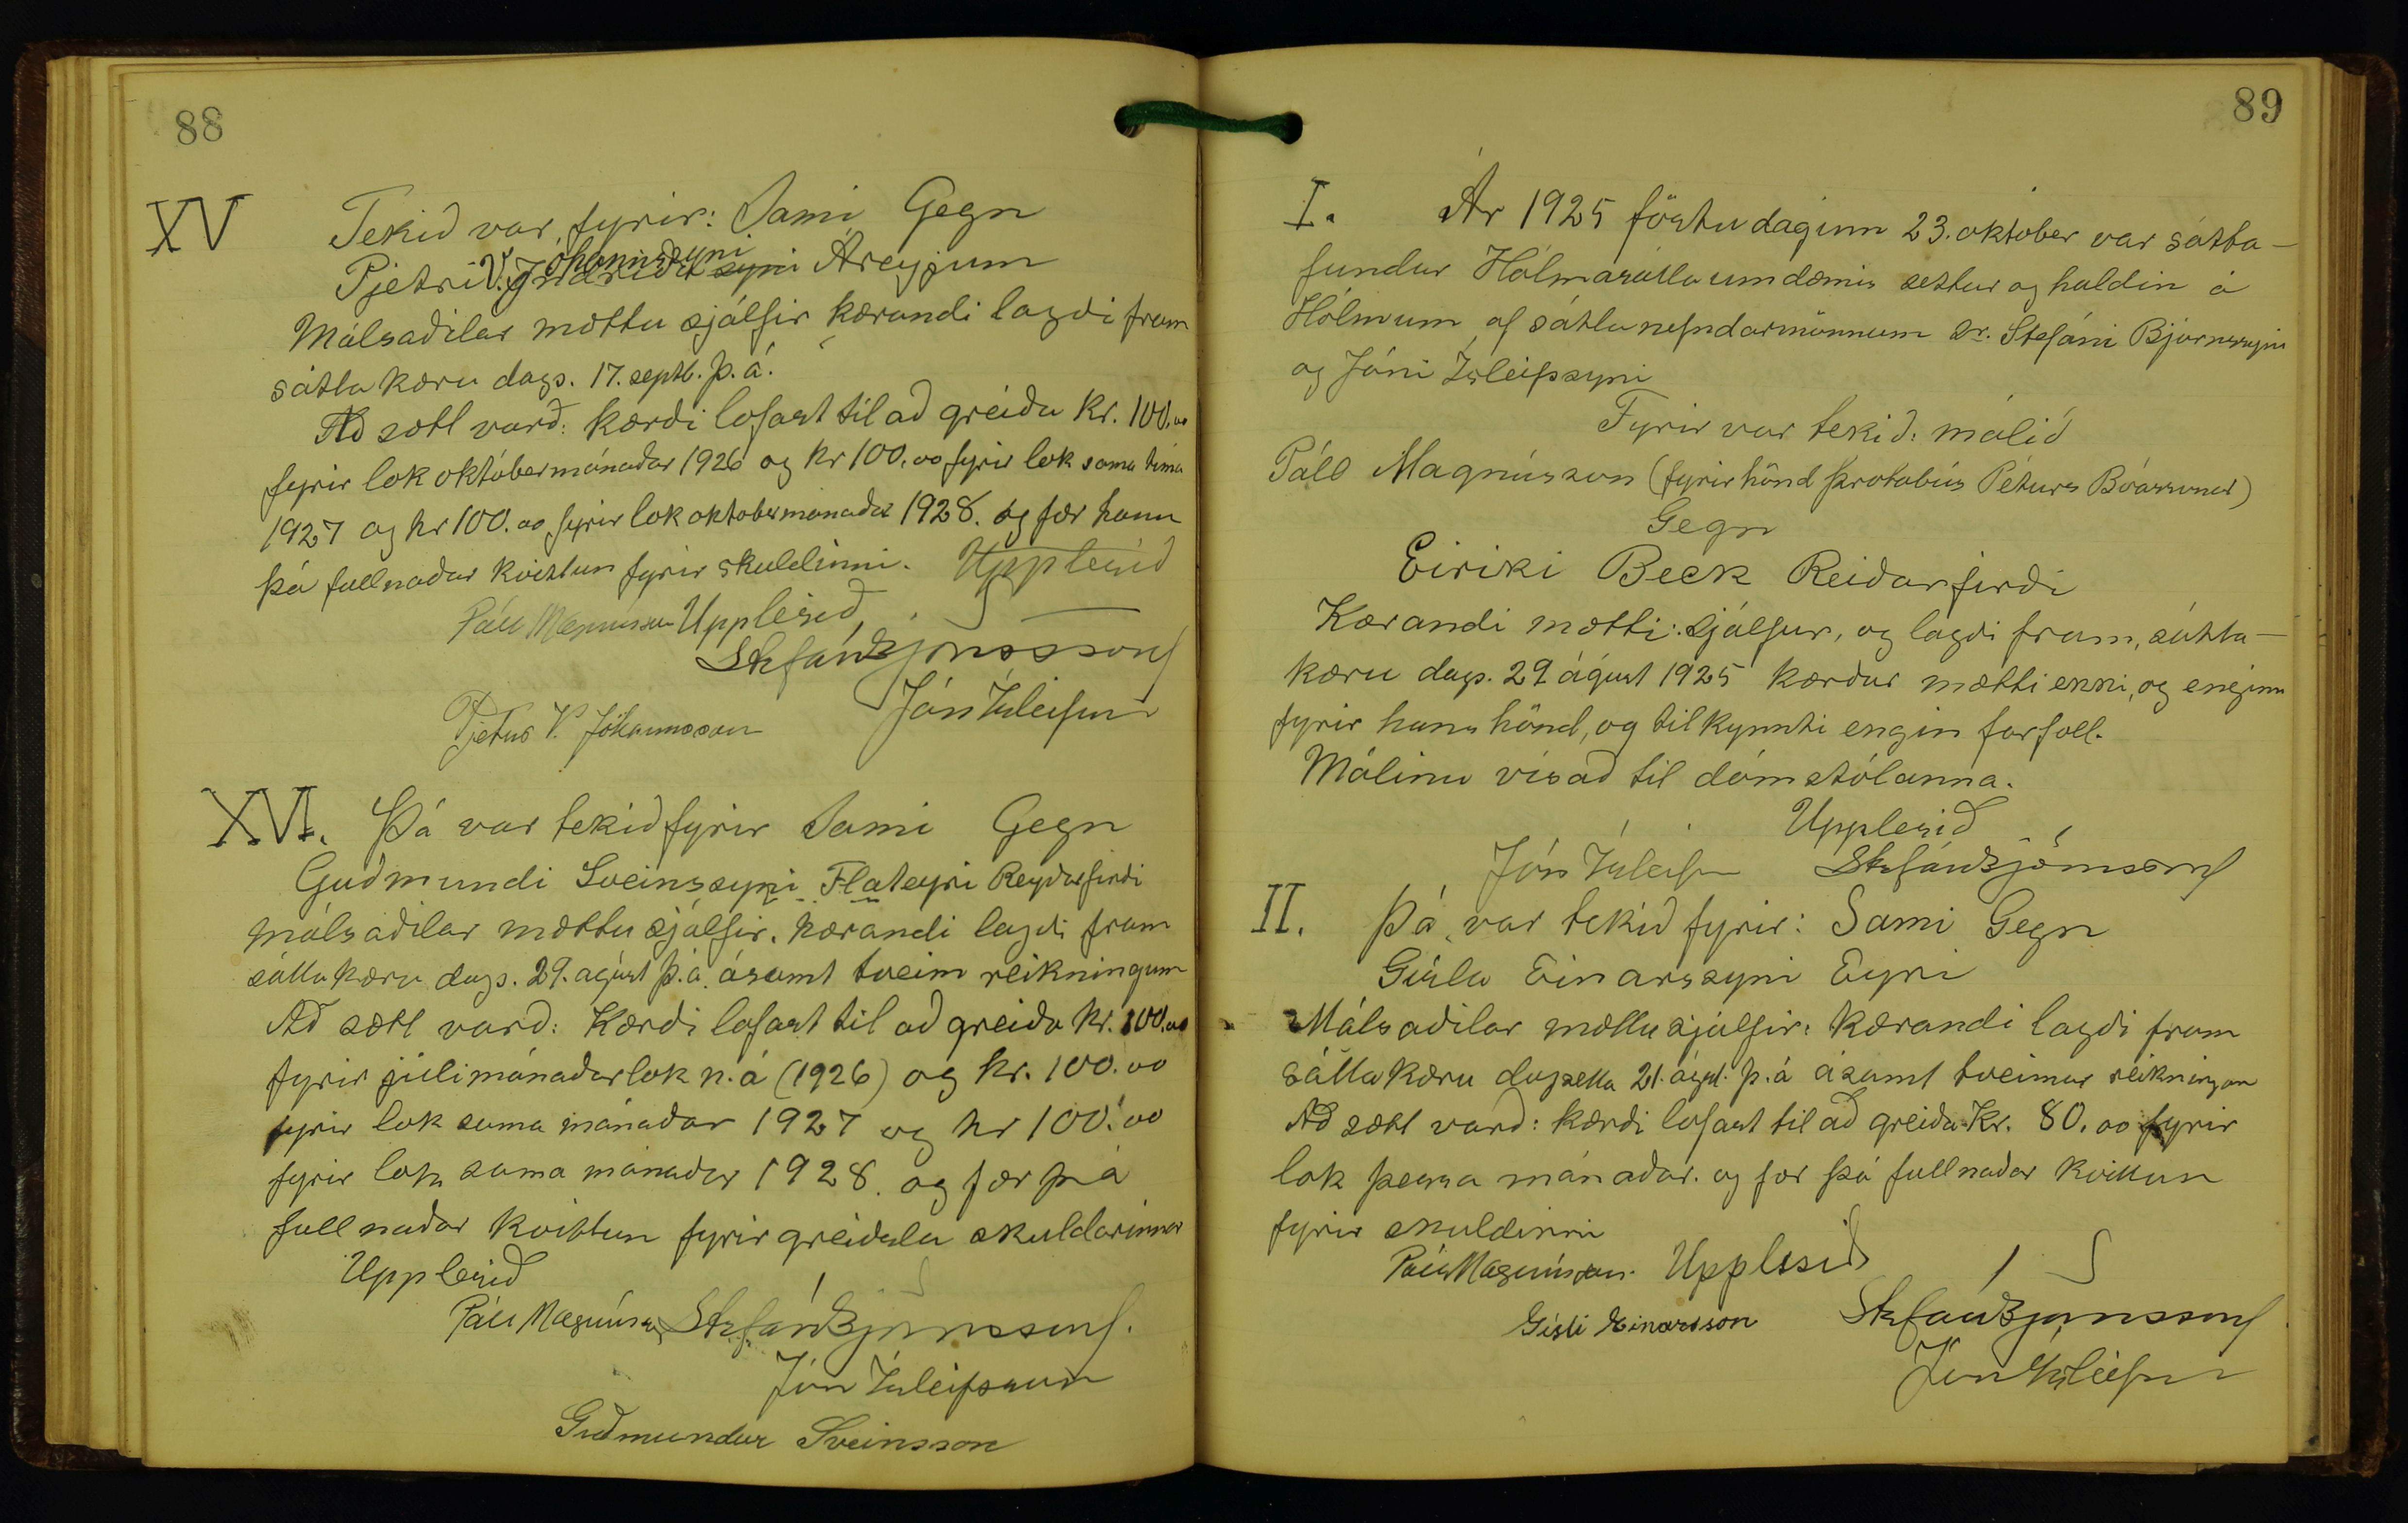 88
XV Tekið var fyrir: Sami Gegn
Pjetri V. Jóhannssyni Áreyjum
Málsaðilar mættu sjálfir kærandi lagði fram
sáttakæru dags. 17. septb. þ.á.
Að sætt varð: kærði lofast til að greiða kr. 100.00
fyrir lok októbermánaðar 1926 og kr 100.00 fyrir lok sama tíma
1927 og kr 100.00 fyrir lok oktobermánaðar 1928. og fær hann
þá fullnaðar kvittun fyrir skuldinni. Upplesið
Páll Magnússon Upplesið
Stefán Björnsson
Jón Ísleifsson
Pjetur V. Jóhannsson
XVI. Þá var tekið fyrir Sami Gegn
Guðmundi Sveinssyni Flateyri Reyðarfirði
málsaðilar mættu sjálfir. kærandi lagði fram
sáttakæru dags. 29. agúst þ.á. ásamt tveim reikningum
Að sætt varð: Kærði lofast til að greiða kr. 100.00
fyrir júlimánaðarlok n.á (1926) og kr. 100.00
fyrir lok sama mánaðar 1927 og kr 100.00
fyrir lok sama mánaðar 1928. og fær þá
fullnaðar kvittun fyrir greiðslu skuldarinnar
Upplesið
Páll Magnússon Stefán Björnsson.
Jón Ísleifsson
Guðmundur Sveinsson
89
I. Ár 1925 föstudaginn 23. oktober var sátta-
fundur Hólmasáttaumdæmis settur og haldin á
Hólmum af sáttanefndarmönnum sr. Stefáni Björnssyni
og Jóni Ísleifssyni
Fyrir var tekið: málið
Páll Magnússon (fyrir hönd þrotabús Péturs Bóassonar)
Gegn
Eiriki Beck Reiðarfirði
Kærandi mætti sjálfur, og lagði fram, sátta-
kæru dags. 29 ágúst 1925 kærður mætti ekki, og enginn
fyrir hans hönd, og tilkynnti engin forföll.
Málinu vísað til dómstólanna.
Upplesið
Jón Ísleifsson Stefán Björnsson
II. Þá var tekið fyrir: Sami Gegn
Gísla Einarssyni Eyri
Málsaðilar mættu sjálfir: kærandi lagði fram
sáttakæru dagsetta 21. ágúst. þ.á ásamt tveimur reikningum
Að sætt varð: kærði lofast til að greiða kr. 80.00 fyrir
lok þessa mánaðar. og fær þá fullnaðar kvittun
fyrir skuldinni
Páll Magnússon. Upplesið
Gísli Einarsson Stefán Björnsson
Jón Ísleifsson